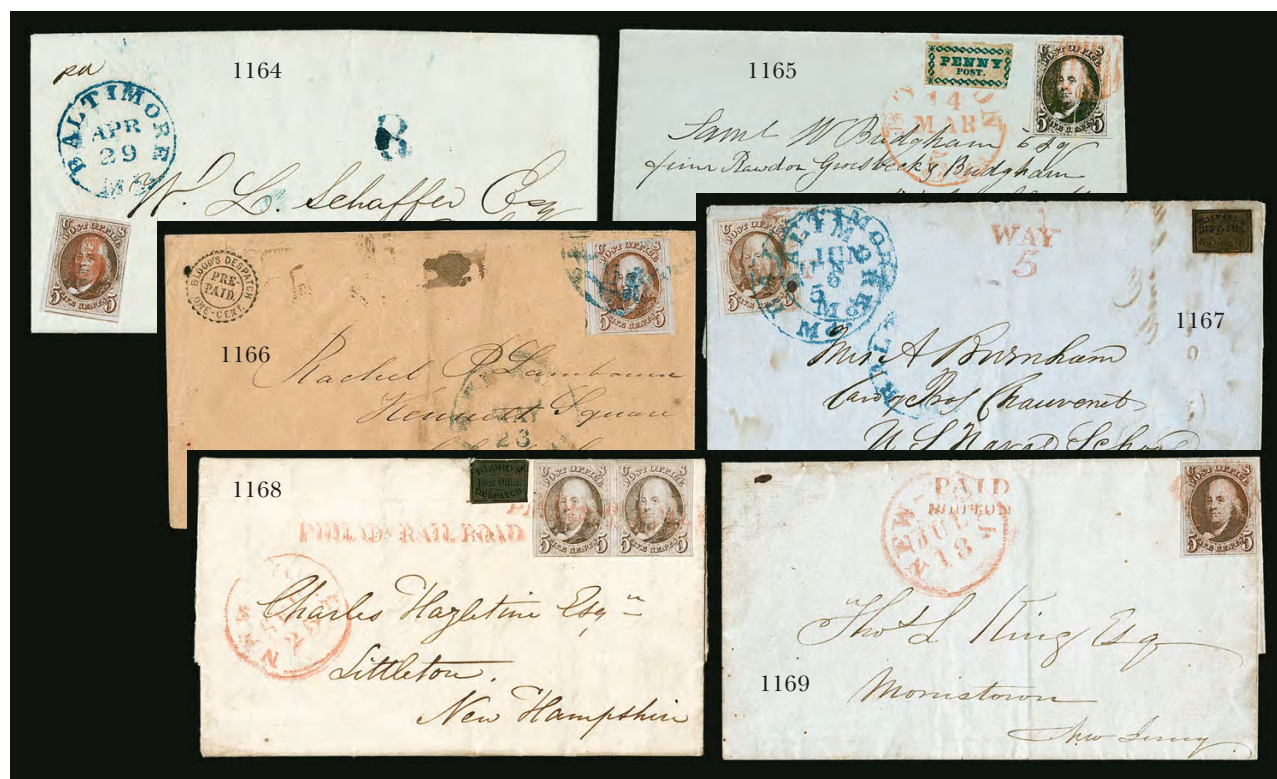 1164
pd
BALTIMORE
APR
29
W. L. Schaffer Esq
POST OFFICE
US
FIVE CENTS
5 5
1165
PENNY
POST.
POST OFFICE
US
FIVE CENTS
5 5
14
MAR
Saml W Bridgham Esq
firm Rawdon Groesbeck & Bridgham
1166
BLOOD'S DESPATCH
PRE-
PAID.
ONE-CENT.
POST OFFICE
US
FIVE CENTS
5 5
Rachel P Lambourn
Kennett Square
23
1167
POST OFFICE
5
BALTIMORE
JUN
5
Md
WAY
5
Mrs A Burnham
Care Prof Chauvenet
U S Naval School
1168
BLOOD'S
DESPATCH
POST OFFICE
US
FIVE CENTS
5 5
POST OFFICE
US
FIVE CENTS
5 5
PHILADA RAIL ROAD
25
Charles Hazletine Esqr
Littleton.
New Hampshire
1169
NEW-
PAID
JUL
18
POST OFFICE
US
FIVE CENTS
5 5
Thos L King Esq
Morristown
New Jersey